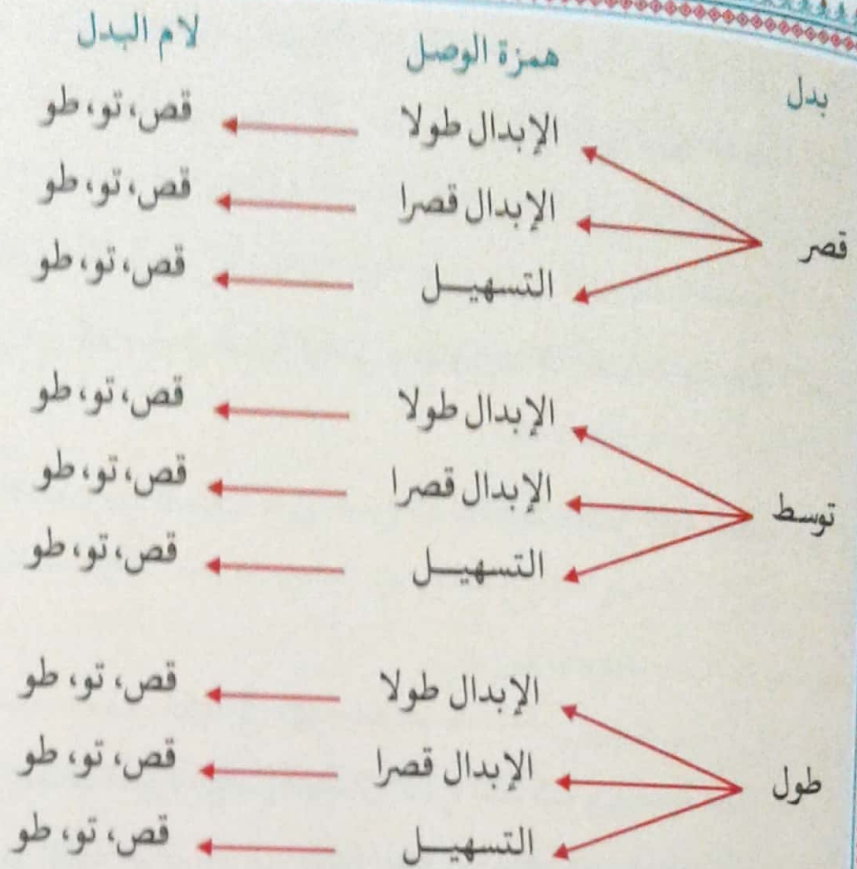 بدل همزة الوصل لام البدل
الإبدال طولا قص، تو، طو
قصر الإبدال قصرا قص، تو، طو
التسهيل قص، تو، طو
الإبدال طولا قص، تو، طو
توسط الإبدال قصرا قص، تو، طو
التسهيل قص، تو، طو
الإبدال طولا قص، تو، طو
طول الإبدال قصرا قص، تو، طو
التسهيل قص، تو، طو